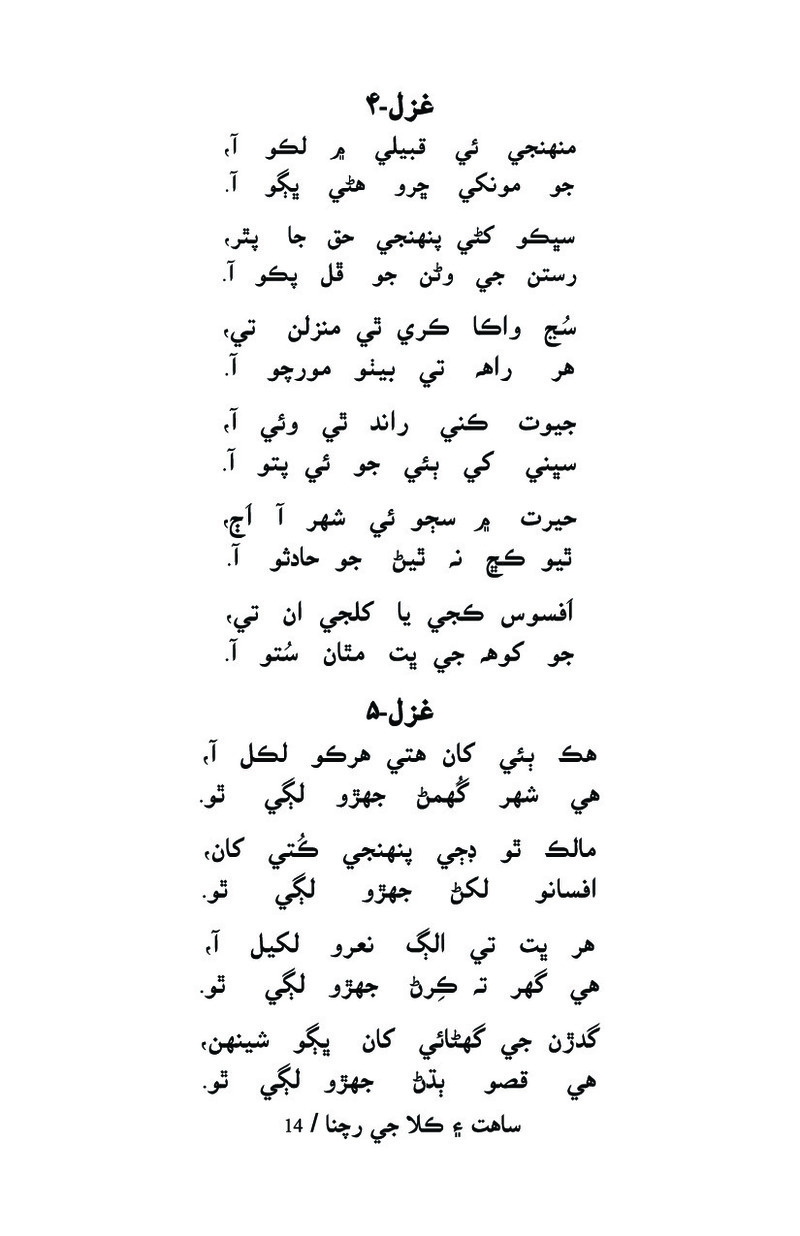 غزل-۴
منهنجي ئي قبيلي ۾ لڪو آ،
جو مونکي ڇرو هڻي ڀڳو آ.
سڀڪو کڻي پنهنجي حق جا پٿر،
رستن جي وڻن جو ڦل پڪو آ.
سُڃ واڪا ڪري ٿي منزلن تي،
هر راهہ تي بيٺو مورچو آ.
جيوت ڪٿي راند ٿي وئي آ،
سڀني کي ٻئي جو ئي پتو آ.
حيرت ۾ سڄو ئي شهر آ اَڄ،
ٿيو ڪڇ نہ ٿيڻ جو حادثو آ.
اَفسوس ڪجي يا کلجي ان تي،
جو کوهہ جي ڀت مٿان سُتو آ.
غزل-۵
هڪ ٻئي کان هتي هرڪو لڪل آ،
هي شهر گُهمڻ جهڙو لڳي ٿو.
مالڪ ٿو ڊڄي پنهنجي ڪُتي کان،
افسانو لکڻ جهڙو لڳي ٿو.
هر ڀت تي الڳ نعرو لکيل آ،
هي گهر تہ ڪِرڻ جهڙو لڳي ٿو.
گدڙن جي گهڻائي کان ڀڳو شينهن،
هي قصو ٻڌڻ جهڙو لڳي ٿو.
ساهت ۽ ڪلا جي رچنا / 14